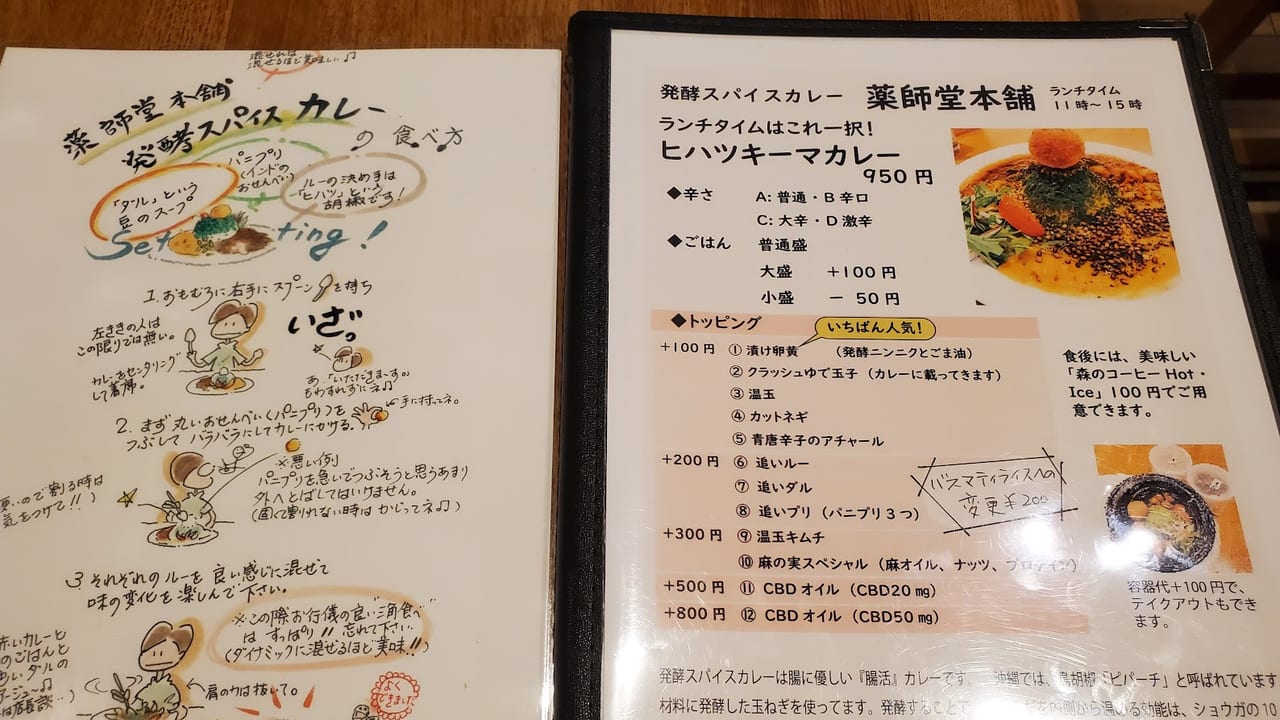 混ぜれば
混ぜるほど美味しい♫
薬師堂本舗
発酵スパイスカレー
の食べ方
「ダル」という
豆のスープ
パニプリ
(インドの
おせんべい)
ルーの決め手は
「ヒハツ」という
胡椒です!
Setting!
1. おもむろに右手にスプーンを持ち
左ききの人は
この限りでは無い。
いざ。
カレーをセンタリング
して着席。
あ、「いただきま〜す。」
もわすれずにネ♫
2. まず丸いおせんべい(パニプリ)を
つぶしてバラバラにしてカレーにかける。
←手に持ってネ。
※悪い例
パニプリを急いでつぶそうと思うあまり
外へとばしてはいけません。
(固くて割れない時はかじってネ♫)
ので割る時は
気をつけて!!)
3 それぞれのルーを良い感じに混ぜて
味の変化を楽しんで下さい。
※この際お行儀の良い三角食べ
は すっぱり!! 忘れて下さい
(ダイナミックに混ぜるほど美味!!)
赤いカレーと
のごはんと
ダルの
肩の力は抜いて。
よく
できました
発酵スパイスカレー 薬師堂本舗 ランチタイム
11時〜15時
ランチタイムはこれ一択!
ヒハツキーマカレー
950円
◆辛さ A: 普通・B 辛口
C: 大辛・D 激辛
◆ごはん 普通盛
大盛 +100円
小盛 − 50円
◆トッピング いちばん人気!
+100円 ① 漬け卵黄 (発酵ニンニクとごま油)
② クラッシュゆで玉子(カレーに載ってきます)
③ 温玉
④ カットネギ
⑤ 青唐辛子のアチャール
+200円 ⑥ 追いルー
⑦ 追いダル
⑧ 追いプリ(パニプリ3つ)
バスマティライスへの
変更¥200
+300円 ⑨ 温玉キムチ
⑩ 麻の実スペシャル(麻オイル、ナッツ、プロテイン)
+500円 ⑪ CBDオイル(CBD20㎎)
+800円 ⑫ CBDオイル(CBD50㎎)
食後には、美味しい
「森のコーヒー Hot・
Ice」100円でご用
意できます。
容器代+100円で、
テイクアウトもでき
ます。
発酵スパイスカレーは腸に優しい『腸活』カレーです。 沖縄では、島胡椒「ピパーチ」と呼ばれています
材料に発酵した玉ねぎを使ってます。発酵することで 内側から温める効能は、ショウガの10